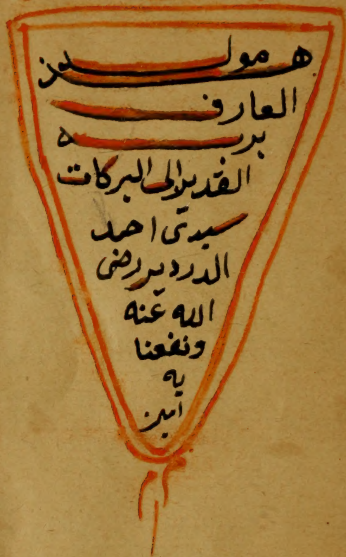 مولد
العارف
بربه
القدير ابى البركات
سيدى احمد
الدردير رضى
الله عنه
ونفعنا
به
امين